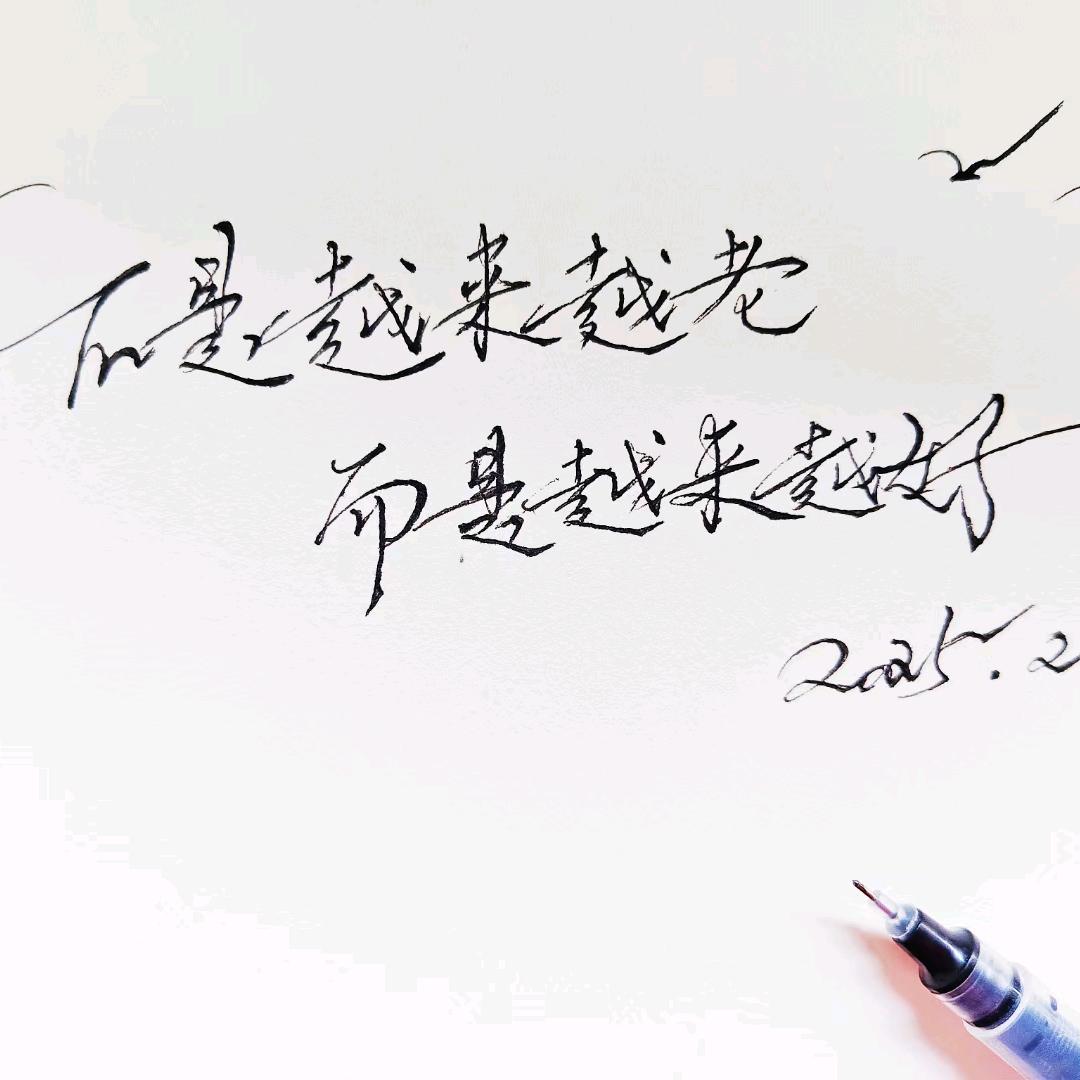 不是越来越老
而是越来越好
2025.2